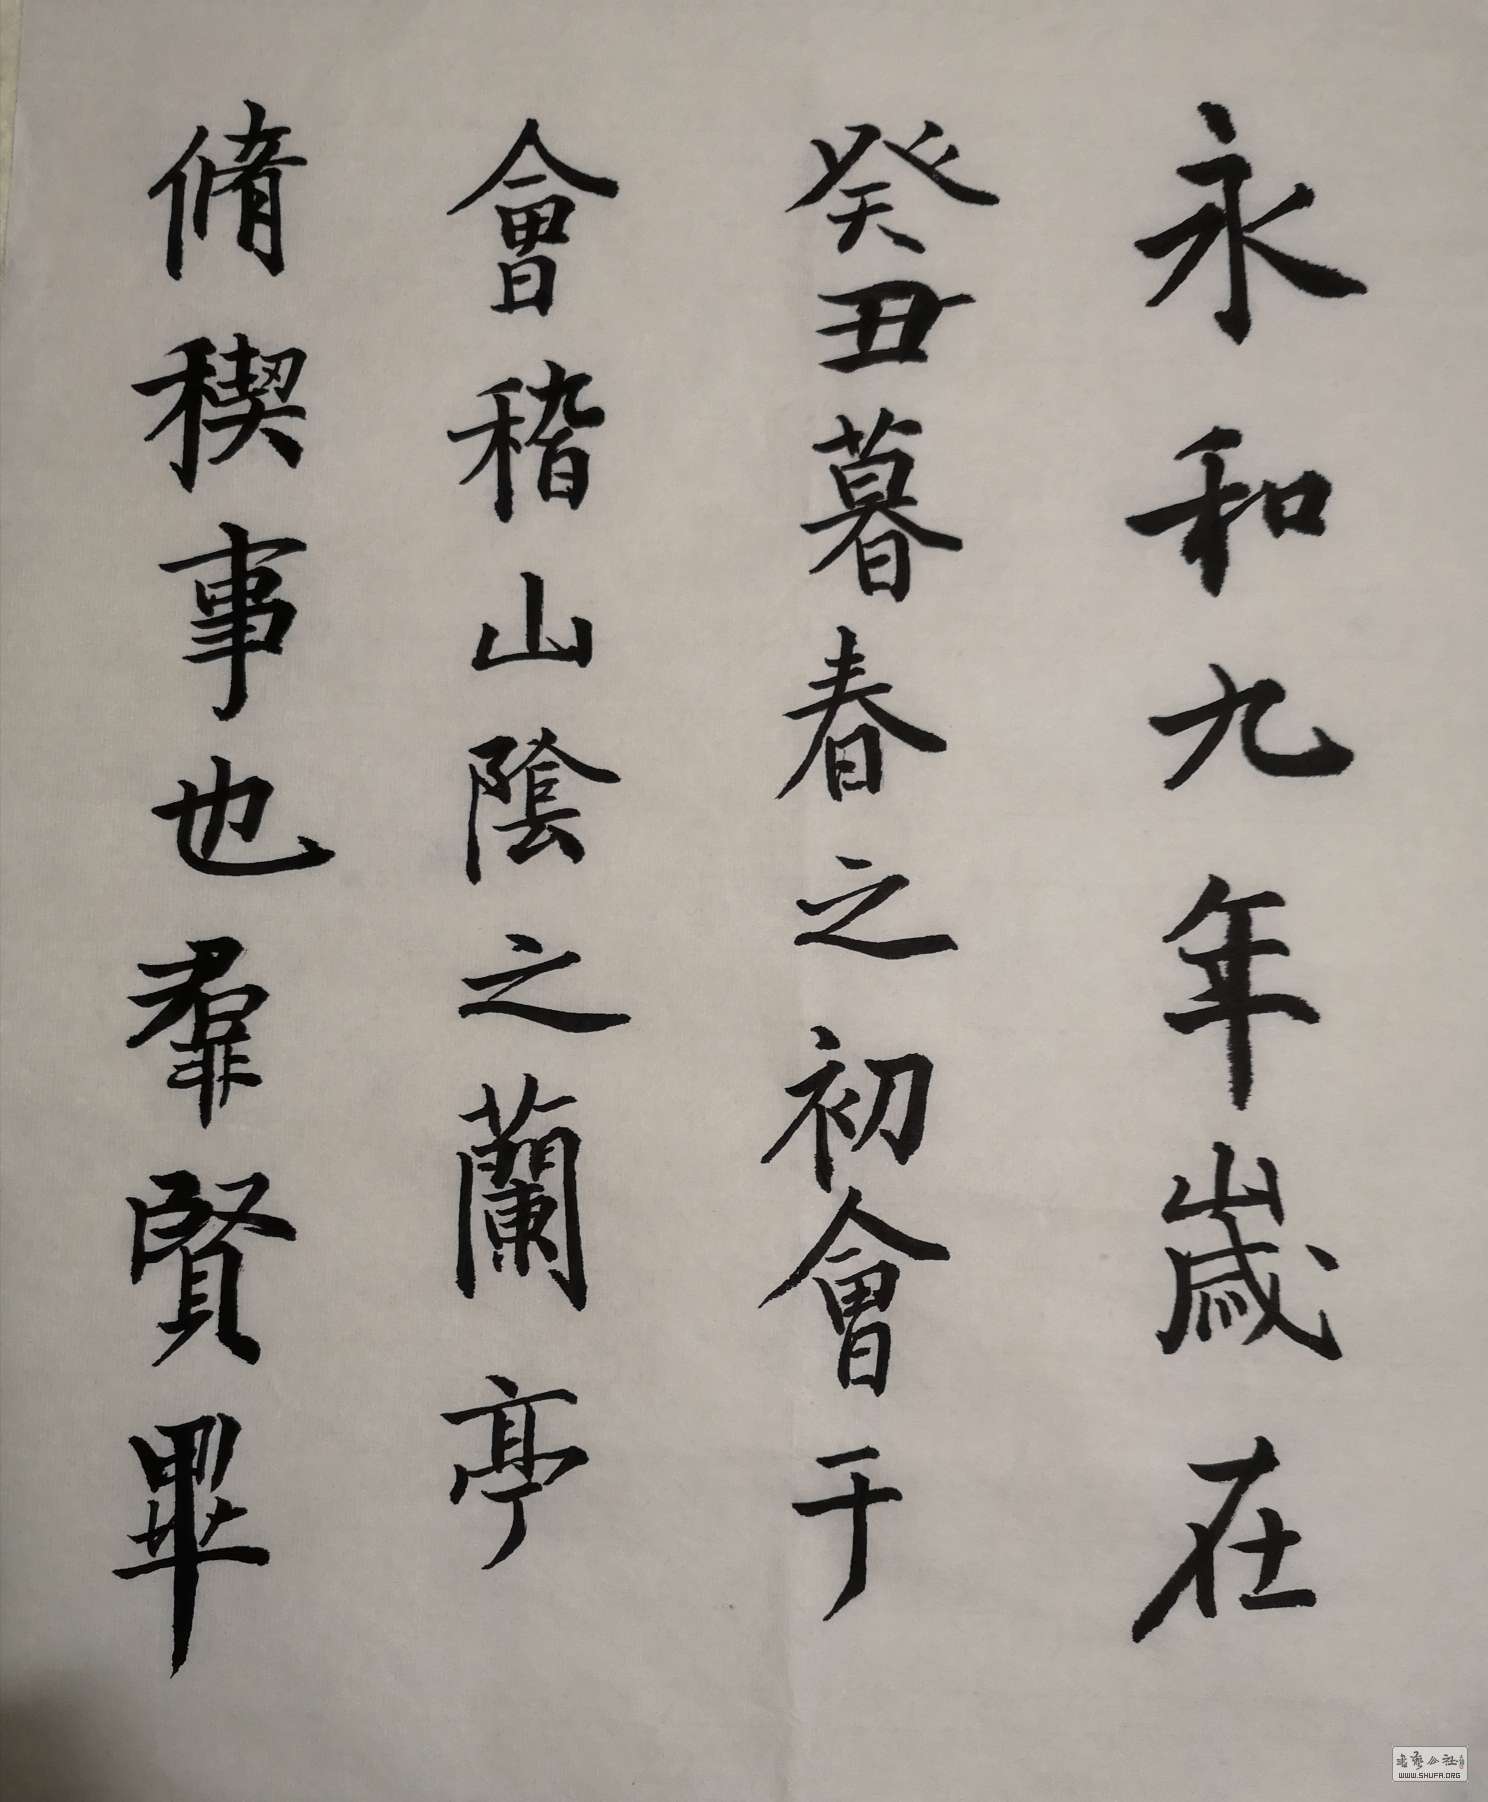 永和九年歲在
癸丑暮春之初會于
會稽山陰之蘭亭
脩稧事也羣賢畢
WWW.SHUFA.ORG